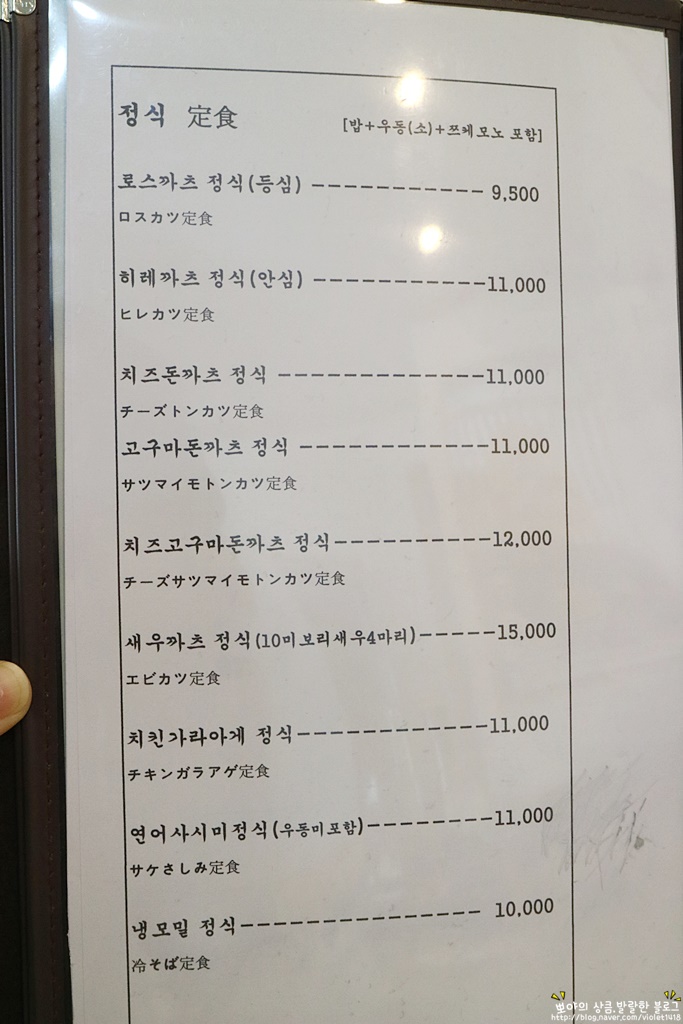 정식 定食
[밥+우동(소)+쯔케모노 포함]
로스까츠 정식(등심) ----------- 9,500
ロスカツ定食
히레까츠 정식(안심) ------------11,000
ヒレカツ定食
치즈돈까츠 정식 -------------11,000
チーズトンカツ定食
고구마돈까츠 정식 ------------11,000
サツマイモトンカツ定食
치즈고구마돈까츠 정식----------12,000
チーズサツマイモトンカツ定食
새우까츠 정식(10미보리새우4마리)-----15,000
エビカツ定食
치킨가라아게 정식------------11,000
チキンガラアゲ定食
연어사시미정식(우동미포함)--------11,000
サケさしみ定食
냉모밀 정식--------------- 10,000
冷そば定食
뽀야의 상큼.발랄한 블로그
http://blog.naver.com/violet1418